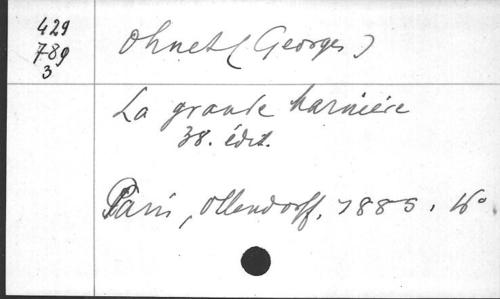 429
789
3
Ohnet (Georges)
La grande harnière
38. édit.
Paris, Ollendorff, 1885. 16°